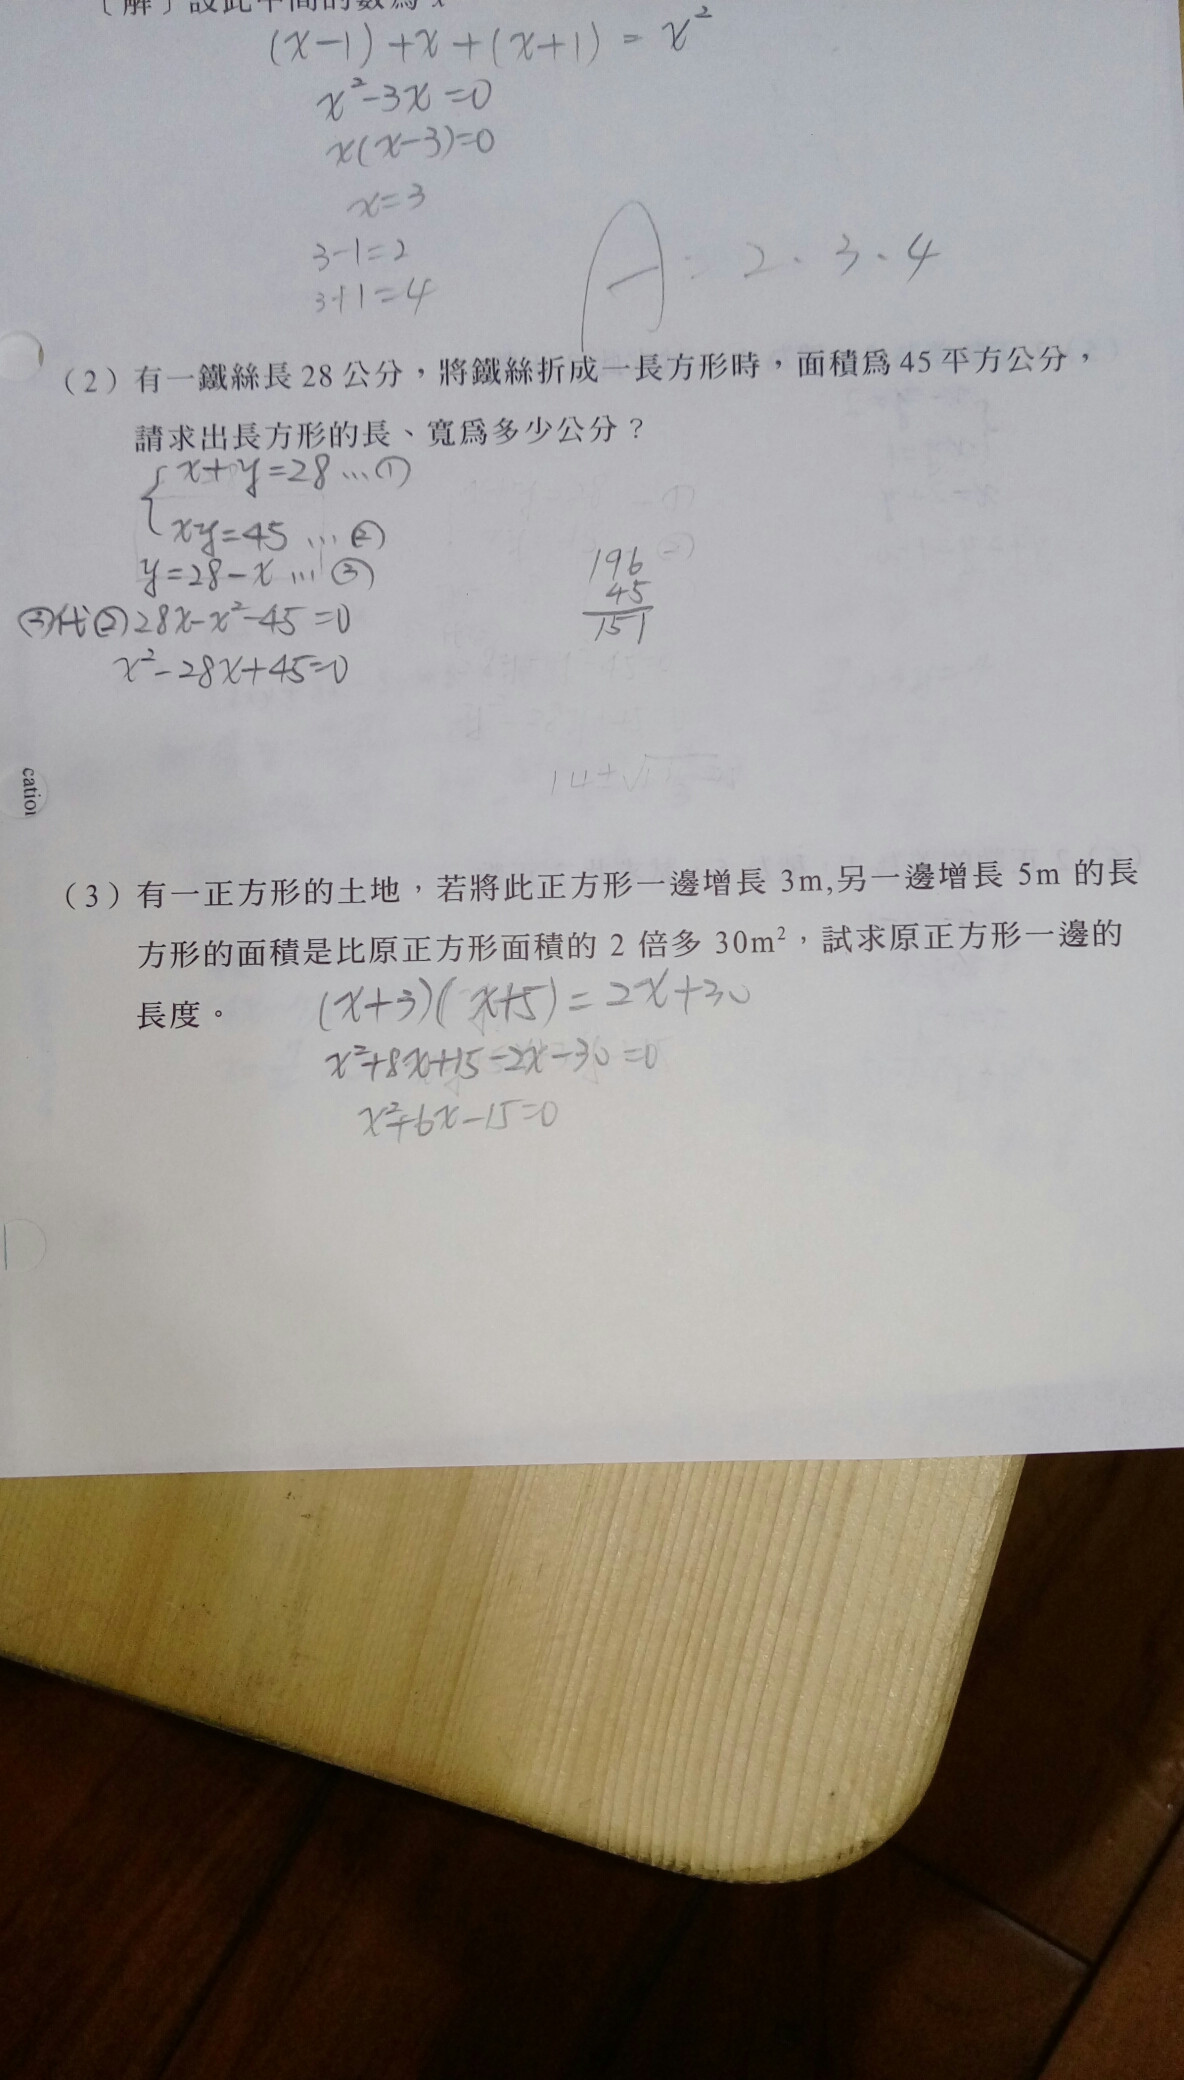 〔解〕設此中間的數為x
(x-1)+x+(x+1)=x²
x²-3x=0
x(x-3)=0
x=3
3-1=2
3+1=4
A:2、3、4
(2)有一鐵絲長28公分,將鐵絲折成一長方形時,面積為45平方公分,
請求出長方形的長、寬為多少公分?
{x+y=28…①
xy=45…②
y=28-x…③
③代②28x-x²-45=0
x²-28x+45=0
196
45
151
14±√
catio
(3)有一正方形的土地,若將此正方形一邊增長 3m,另一邊增長 5m 的長
方形的面積是比原正方形面積的 2 倍多 30m²,試求原正方形一邊的
長度。
(x+3)(x+5)=2x+30
x²+8x+15-2x-30=0
x²+6x-15=0